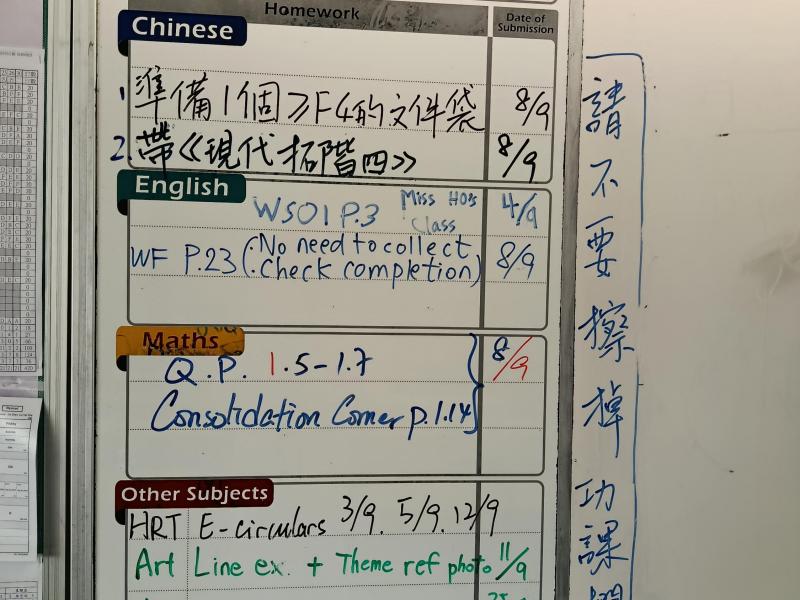 Homework
Date of Submission
Chinese
1. 準備1個≥F4的文件袋 8/9
2. 帶《現代拓階四》 8/9
English
WS01 P.3 Miss Ho's Class 4/9
WF P.23 (·No need to collect 8/9
·Check completion)
Maths
Q.P. 1.5-1.7 8/9
Consolidation Corner p.1.14
Other Subjects
HRT E-circulars 3/9. 5/9. 12/9
Art Line ex. + Theme ref photo 11/9
請不要擦掉功課